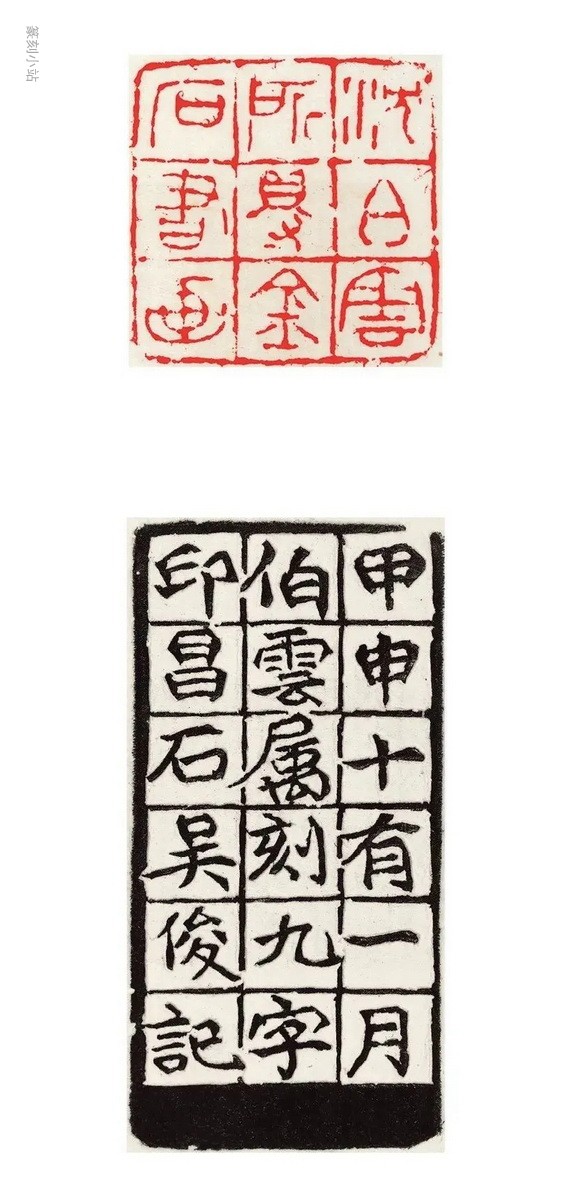 篆刻小站
沈伯雲
所得金
石書畫
甲申十有一月
伯雲属刻九字
印昌石吴俊記